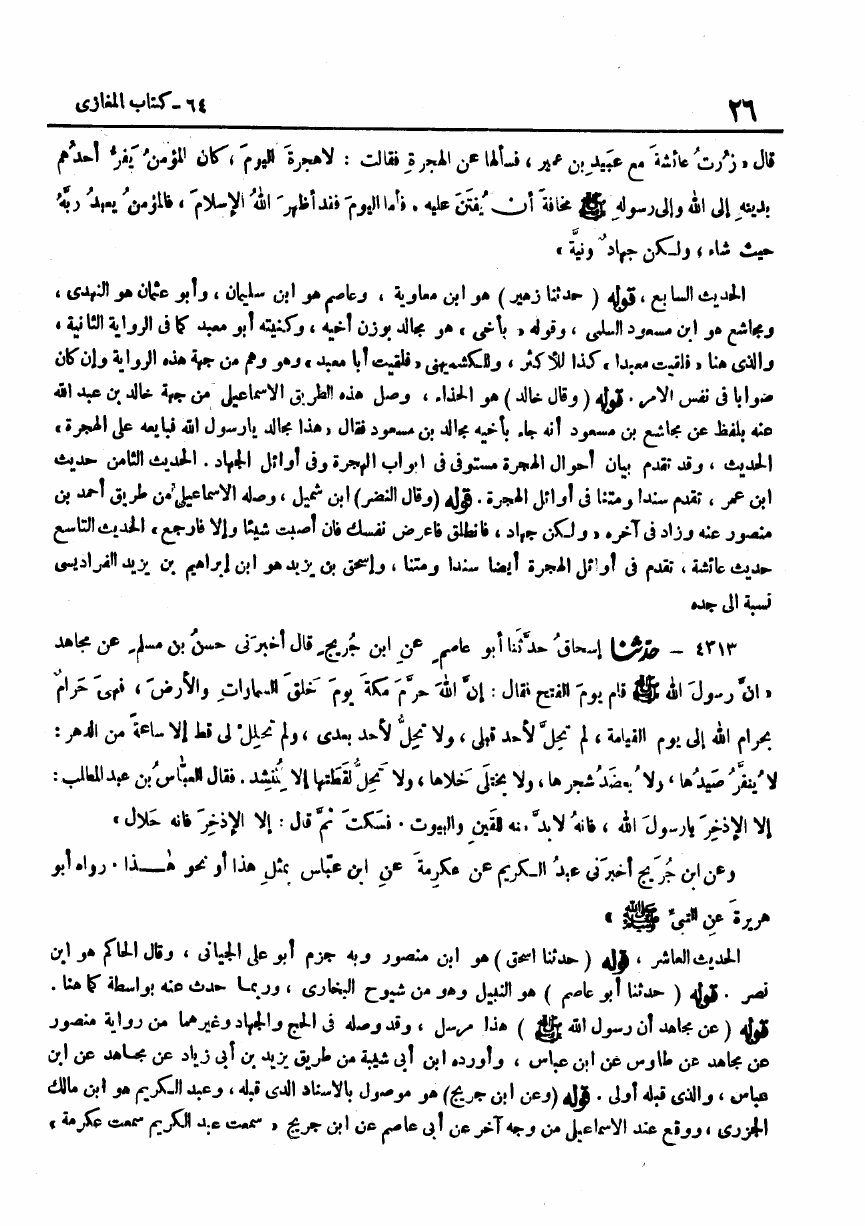 ٢٦
٦٤ - كتاب المغازى
قال « زُرْتُ عائشةَ مع عُبَيدِ بن عمير ، فسألها عن الهجرةِ فقالت : لا هجرةَ اليومَ ، كان المؤمنُ يَفِرُّ أحدُهم
بدينهِ إلى الله وإلى رسوله ﷺ مخافةَ أن يُفتَنَ عليه . فأما اليومَ فقد أظهرَ اللهُ الإسلامَ ، فالمؤمنُ يعبدُ ربَّهُ
حيث شاء ، ولـكن جهادٌ ونيَّة »
الحديث السابع ، قوله ( حدثنا زهير ) هو ابن معاوية ، وعاصم هو ابن سليمان ، وأبو عثمان هو النهدى ،
ومجاشع هو ابن مسعود السلمى ، وقوله « بأخى » هو مجالد بوزن أخيه ، وكنيته أبو معبد كما فى الرواية الثانية ،
والذى هنا « فلقيت معبدا » كذا للأكثر ، وللكشميهنى « فلقيت أبا معبد » وهو وهم من جهة هذه الرواية وإن كان
صوابا فى نفس الامر . قوله ( وقال خالد ) هو الحذاء ، وصل هذه الطريق الاسماعيلى من جهة خالد بن عبد الله
عنه بلفظ عن مجاشع بن مسعود أنه جاء بأخيه مجالد بن مسعود فقال « هذا مجالد يارسول الله فبايعه على الهجرة »
الحديث ، وقد تقدم بيان أحوال الهجرة مستوفى فى ابواب الهجرة وفى أوائل الجهاد . الحديث الثامن حديث
ابن عمر ، تقدم سندا ومتنا فى أوائل الهجرة . قوله ( وقال النضر ) ابن شميل ، وصله الاسماعيلى من طريق أحمد بن
منصور عنه وزاد فى آخره « ولـكن جهاد ، فانطلق فاعرض نفسك فان أصبت شيئا وإلا فارجع » الحديث التاسع
حديث عائشة ، تقدم فى أوائل الهجرة أيضا سندا ومتنا ، وإسحق بن يزيد هو ابن إبراهيم بن يزيد الفراديسى
نسبة الى جده
٤٣١٣ - حدثنا إسحاقُ حدَّثَنا أبو عاصمٍ عنِ ابن جُريجٍ قال أخبرَنى حسنُ بن مسلمٍ عن مجاهد
« انَّ رسولَ الله ﷺ قام يومَ الفتح فقال : إنَّ اللهَ حرَّمَ مكةَ يومَ خلقَ السماواتِ والأرضَ ، فهىَ حَرامٌ
بحرام الله إلى يوم القيامة ، لم تحِلَّ لأحد قبلى ، ولا تحِلُّ لأحد بعدى ، ولم تحلِلْ لى قط إلا ساعةً من الدهر :
لا يُنفَّرُ صَيدُها ، ولا يُعضَدُ شجرها ، ولا يختلَى خلاها ، ولا تحِلُّ لُقَطتها إلا لمُنشِد . فقال العبّاسُ بن عبد المطلب :
إلا الإذخِرَ يارسولَ الله ، فانهُ لابدَّ منه للقَينِ والبيوت . فسَكتَ ثمَّ قال : إلا الإذخِرَ فانه حَلال »
وعن ابن جُرَيج أخبرَنى عبدُ الـكريم عن عِكرِمةَ عنِ ابن عبّاس بمثلِ هذا أو نحو هٰـــذا . رواه أبو
هريرةَ عنِ النبىِّ ﷺ »
الحديث العاشر ، قوله ( حدثنا اسحق ) هو ابن منصور وبه جزم أبو على الجيانى ، وقال الحاكم هو ابن
نصر . قوله ( حدثنا أبو عاصم ) هو النبيل وهو من شيوخ البخارى ، وربمـا حدث عنه بواسطة كما هنا .
قوله ( عن مجاهد أن رسول الله ﷺ ) هذا مرسل ، وقد وصله فى الحج والجهاد وغيرهما من رواية منصور
عن مجاهد عن طاوس عن ابن عباس ، وأورده ابن أبى شيبة من طريق يزيد بن أبى زياد عن مجـاهد عن ابن
عباس ، والذى قبله أولى . قوله ( وعن ابن جريج ) هو موصول بالاسناد الذى قبله ، وعبد الـكريم هو ابن مالك
الجزرى ، ووقع عند الاسماعيلى من وجه آخر عن أبى عاصم عن ابن جريج « سمعت عبد الكريم سمعت عكرمة »